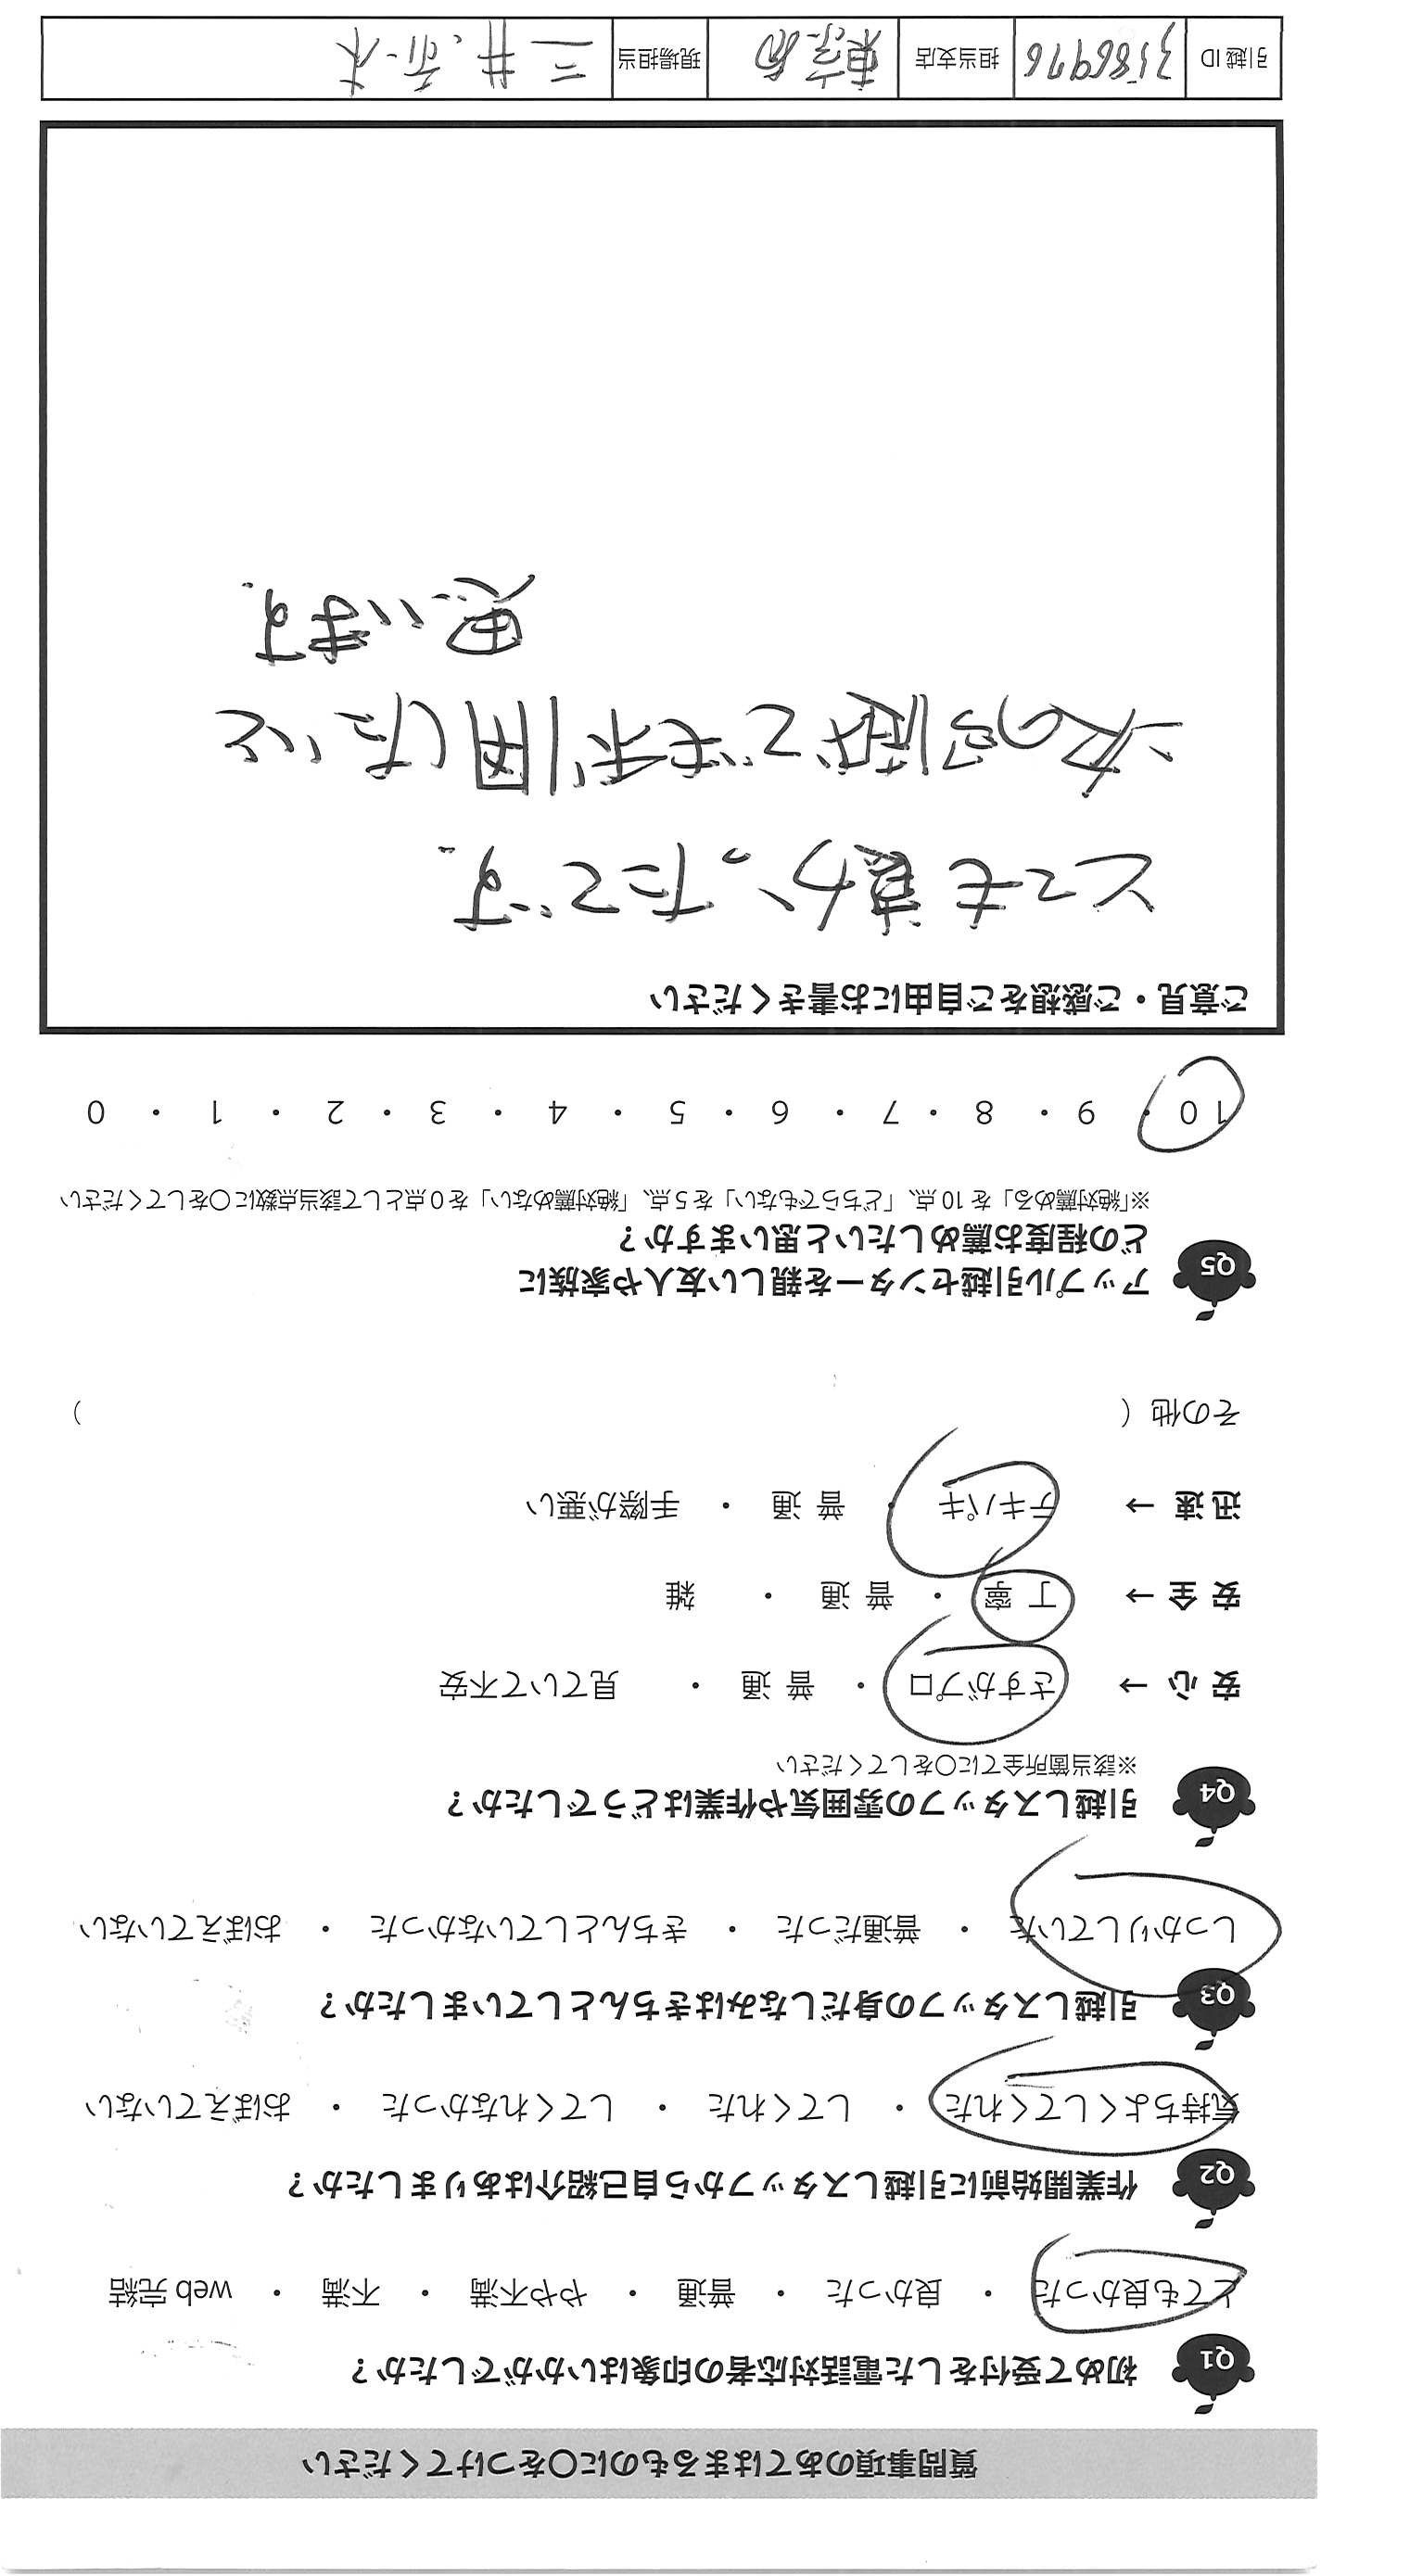 質問事項のあてはまるものに〇をつけてください
Q1 初めて受付をした電話対応者の印象はいかがでしたか？
とても良かった ・ 良かった ・ 普通 ・ やや不満 ・ 不満 ・ web 完結
Q2 作業開始前に引越しスタッフから自己紹介はありましたか？
気持ちよくしてくれた ・ してくれた ・ してくれなかった ・ おぼえていない
Q3 引越しスタッフの身だしなみはきちんとしていましたか？
しっかりしていた ・ 普通だった ・ きちんとしていなかった ・ おぼえていない
Q4 引越しスタッフの雰囲気や作業はどうでしたか？
※該当箇所全てに〇をしてください
安 心 → さすがプロ ・ 普 通 ・ 見ていて不安
安 全 → 丁 寧 ・ 普 通 ・ 雑
迅 速 → テキパキ ・ 普 通 ・ 手際が悪い
その他（ ）
Q5 アップル引越センターを親しい友人や家族に
どの程度お薦めしたいと思いますか？
※「絶対薦める」を 10 点、「どちらでもない」を 5 点、「絶対薦めない」を 0 点として該当点数に〇をしてください
10 ・ 9 ・ 8 ・ 7 ・ 6 ・ 5 ・ 4 ・ 3 ・ 2 ・ 1 ・ 0
ご意見・ご感想をご自由にお書きください
とても良かったです。
次の引越でも利用したいと
思います。
引越 ID 3586976 担当支店 東京南 現場担当 三井、